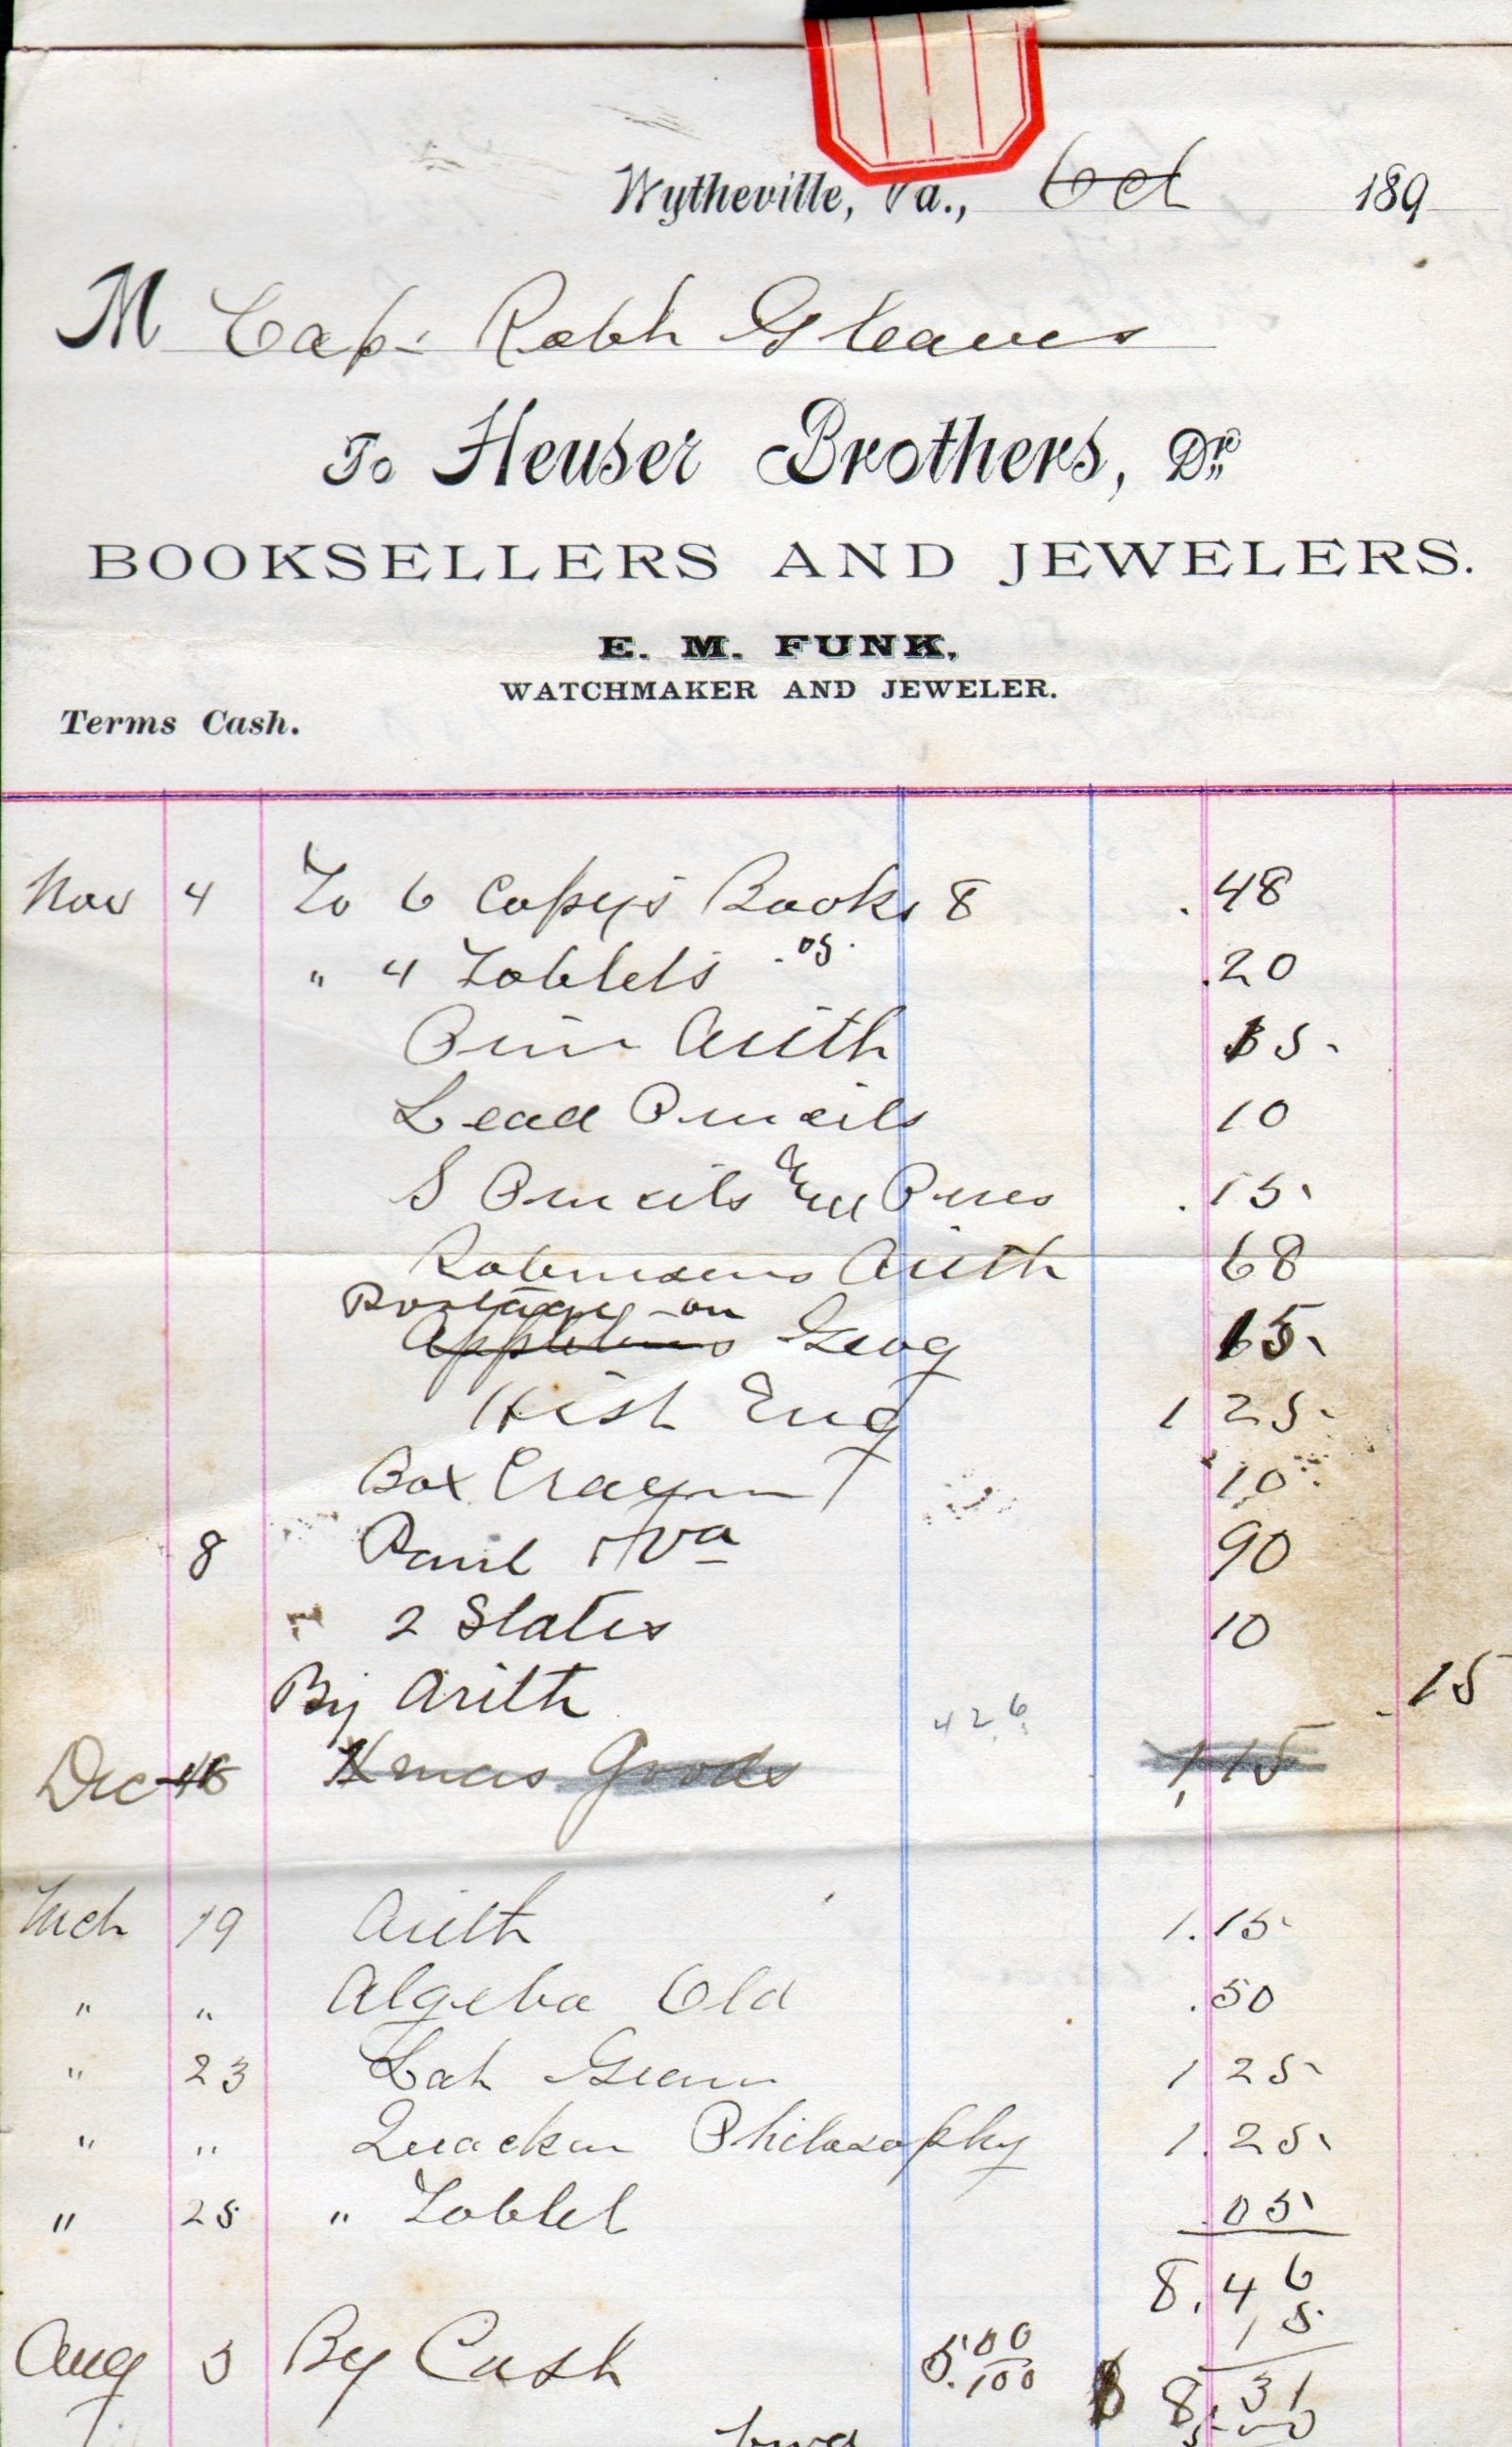 Wytheville, Va., Oct 189
M Cap. Robt Gleaves
To Heuser Brothers, Dr
BOOKSELLERS AND JEWELERS.
E. M. FUNK,
WATCHMAKER AND JEWELER.
Terms Cash.
Nov 4 To 6 Copys Books 8 .48
" 4 Tablets .05. .20
Prim Arith 15.
Lead Pencils 10
S Pencils & Pens .15.
Robinsons Arith 68
Postage on
Appletons Geog 15.
Hist Eng 1 25.
Box Crayon 10.
8 Va 90
" 2 Slates 10
By Arith .15
426
Dec Xmas Goods 1.15
Mch 19 Arith 1.15
" " Algeba Old .50
" 23 Lat Gram 1 25
" " Quacken Philosophy 1.25.
" 25 " Tablet .05
8.46
15
Aug 5 By Cash 5.00/100 $ 8.31